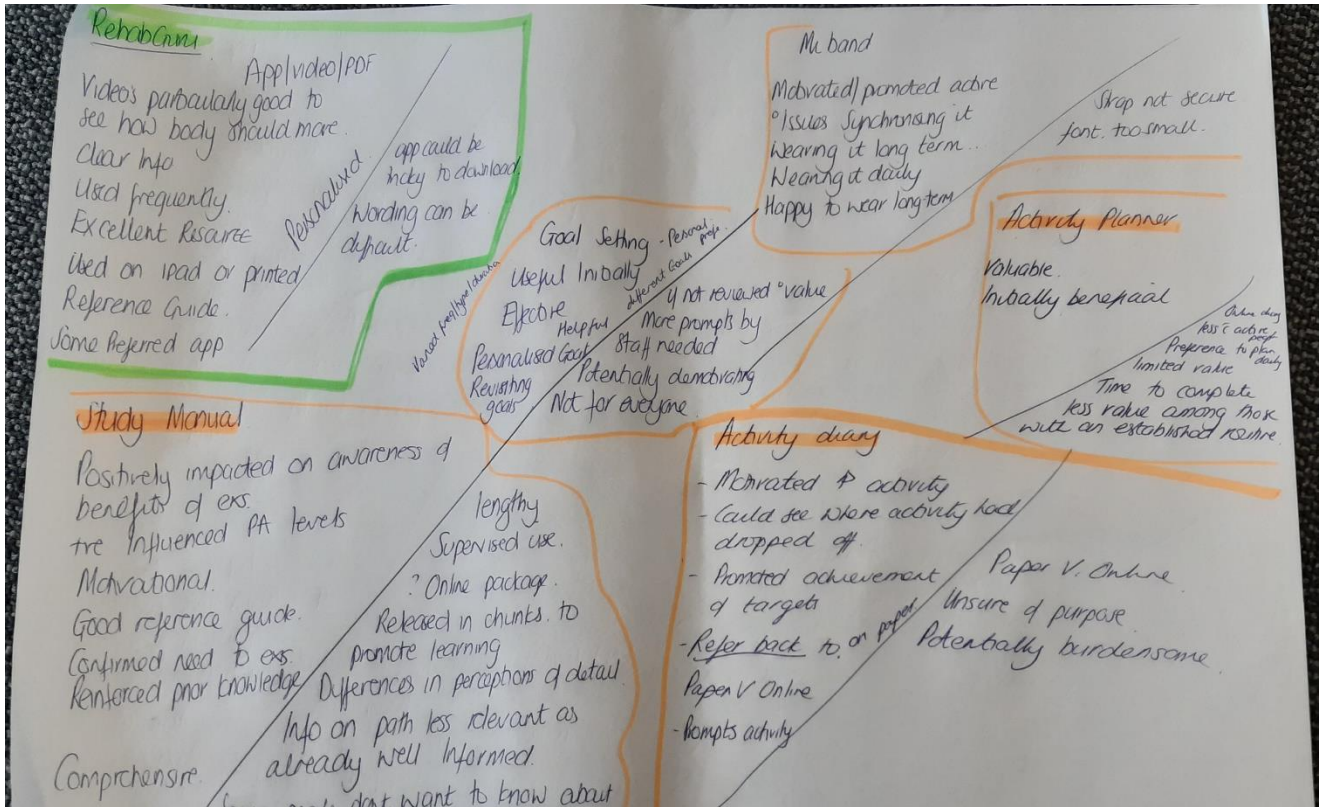 RehabGuru
App/video/PDF
Video's particularly good to
see how body should move.
Clear Info
Used frequently.
Excellent Resource
Used on ipad or printed
Reference Guide.
Some Preferred app
Personalised.
app could be
tricky to download.
Wording can be
difficult.
Mi band
Motivated/promoted active
Issues Synchronising it
Wearing it long term..
Wearing it daily
Happy to wear long term
Strap not secure
font. too small.
Goal Setting - Personal
pref.
Useful Initially
Effective
Helpful
Personalised Goals
Revisiting
goals
different Goals
if not reviewed value
More prompts by
Staff needed
Potentially demotivating
Not for everyone.
Varied freq/type/duration
Activity Planner
Valuable.
Initially beneficial
Online diary
less active
Preference to plan
daily
limited value
Time to complete
less value among those
with an established routine.
Study Manual
Positively impacted on awareness of
benefits of exs.
+ve Influenced PA levels
Motivational.
Good reference guide.
Confirmed need to exs.
Reinforced prior knowledge
Comprehensive.
lengthy
Supervised use.
? Online package.
Released in chunks. to
promote learning
Differences in perceptions of detail.
Info on path less relevant as
already well Informed.
dont want to know about
Activity diary
- Motivated activity
- Could see where activity had
dropped off.
- Promoted achievement
of targets
- Refer back to. on paper
Paper V Online
- Prompts activity
Paper V. Online
Unsure of purpose.
Potentially burdensome.